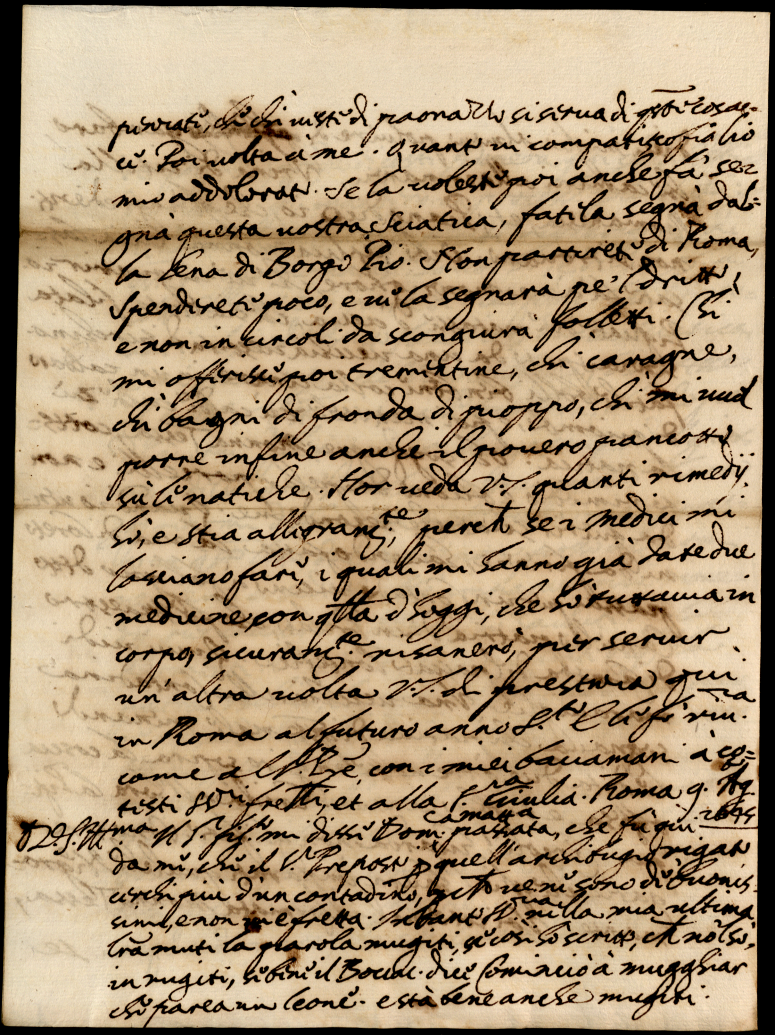 pensati, che chi veste di paonazzo si serva di q.ste cosac-
cie. Poi volta à me. Quanto vi compatisco figlio
mio addolorato. Se la voleste poi anche fà se=
gnà questa vostra sciatica, fatila segnà dal=
la Lena di Borgo Pio. Non partirete di Roma,
spenderete poco, e ve la segnarà pe' l dritto,
e non in circoli da scongiurà folletti. Chi
mi offerisce poi trementine, chi caragne,
chi bagni di fronda di pioppo, chi mi vuol
porre in fine anche il povero pancotto
sù le natiche. Hor veda V.S. quanti rimedij
hò, e stia allegram.te, perche se i Medici mi
lasciano fare, i quali mi hanno già date due
medicine con q.lla d'hoggi, che hò tuttavia in
corpo, sicuram.te risanerò, per servir
un'altra volta V.S. di presenza qui
in Roma al futuro anno S.to E le fò riv.za
come al S.r P̃re, con i miei baciamani à co=
testi SS.ri fr̃elli, et alla S.ra Giulia. Roma 9.
Il S.r mi disse Dom.ca passata, che fù qui
da me, che il S.r Preposto p quell'archibugio rigato
cerchi più d'un contadino, perche ve ne sono di buonis=
simi, e non vi è fretta. Intanto V.S. nella mia ultima
l̃ra muti la parola mugiti, se così hò scritto, che nõ lo sò,
in rugiti, sebene il Bocac. dice Cominciò à mugghiar
che parea un leone. e stà bene anche mugiti.